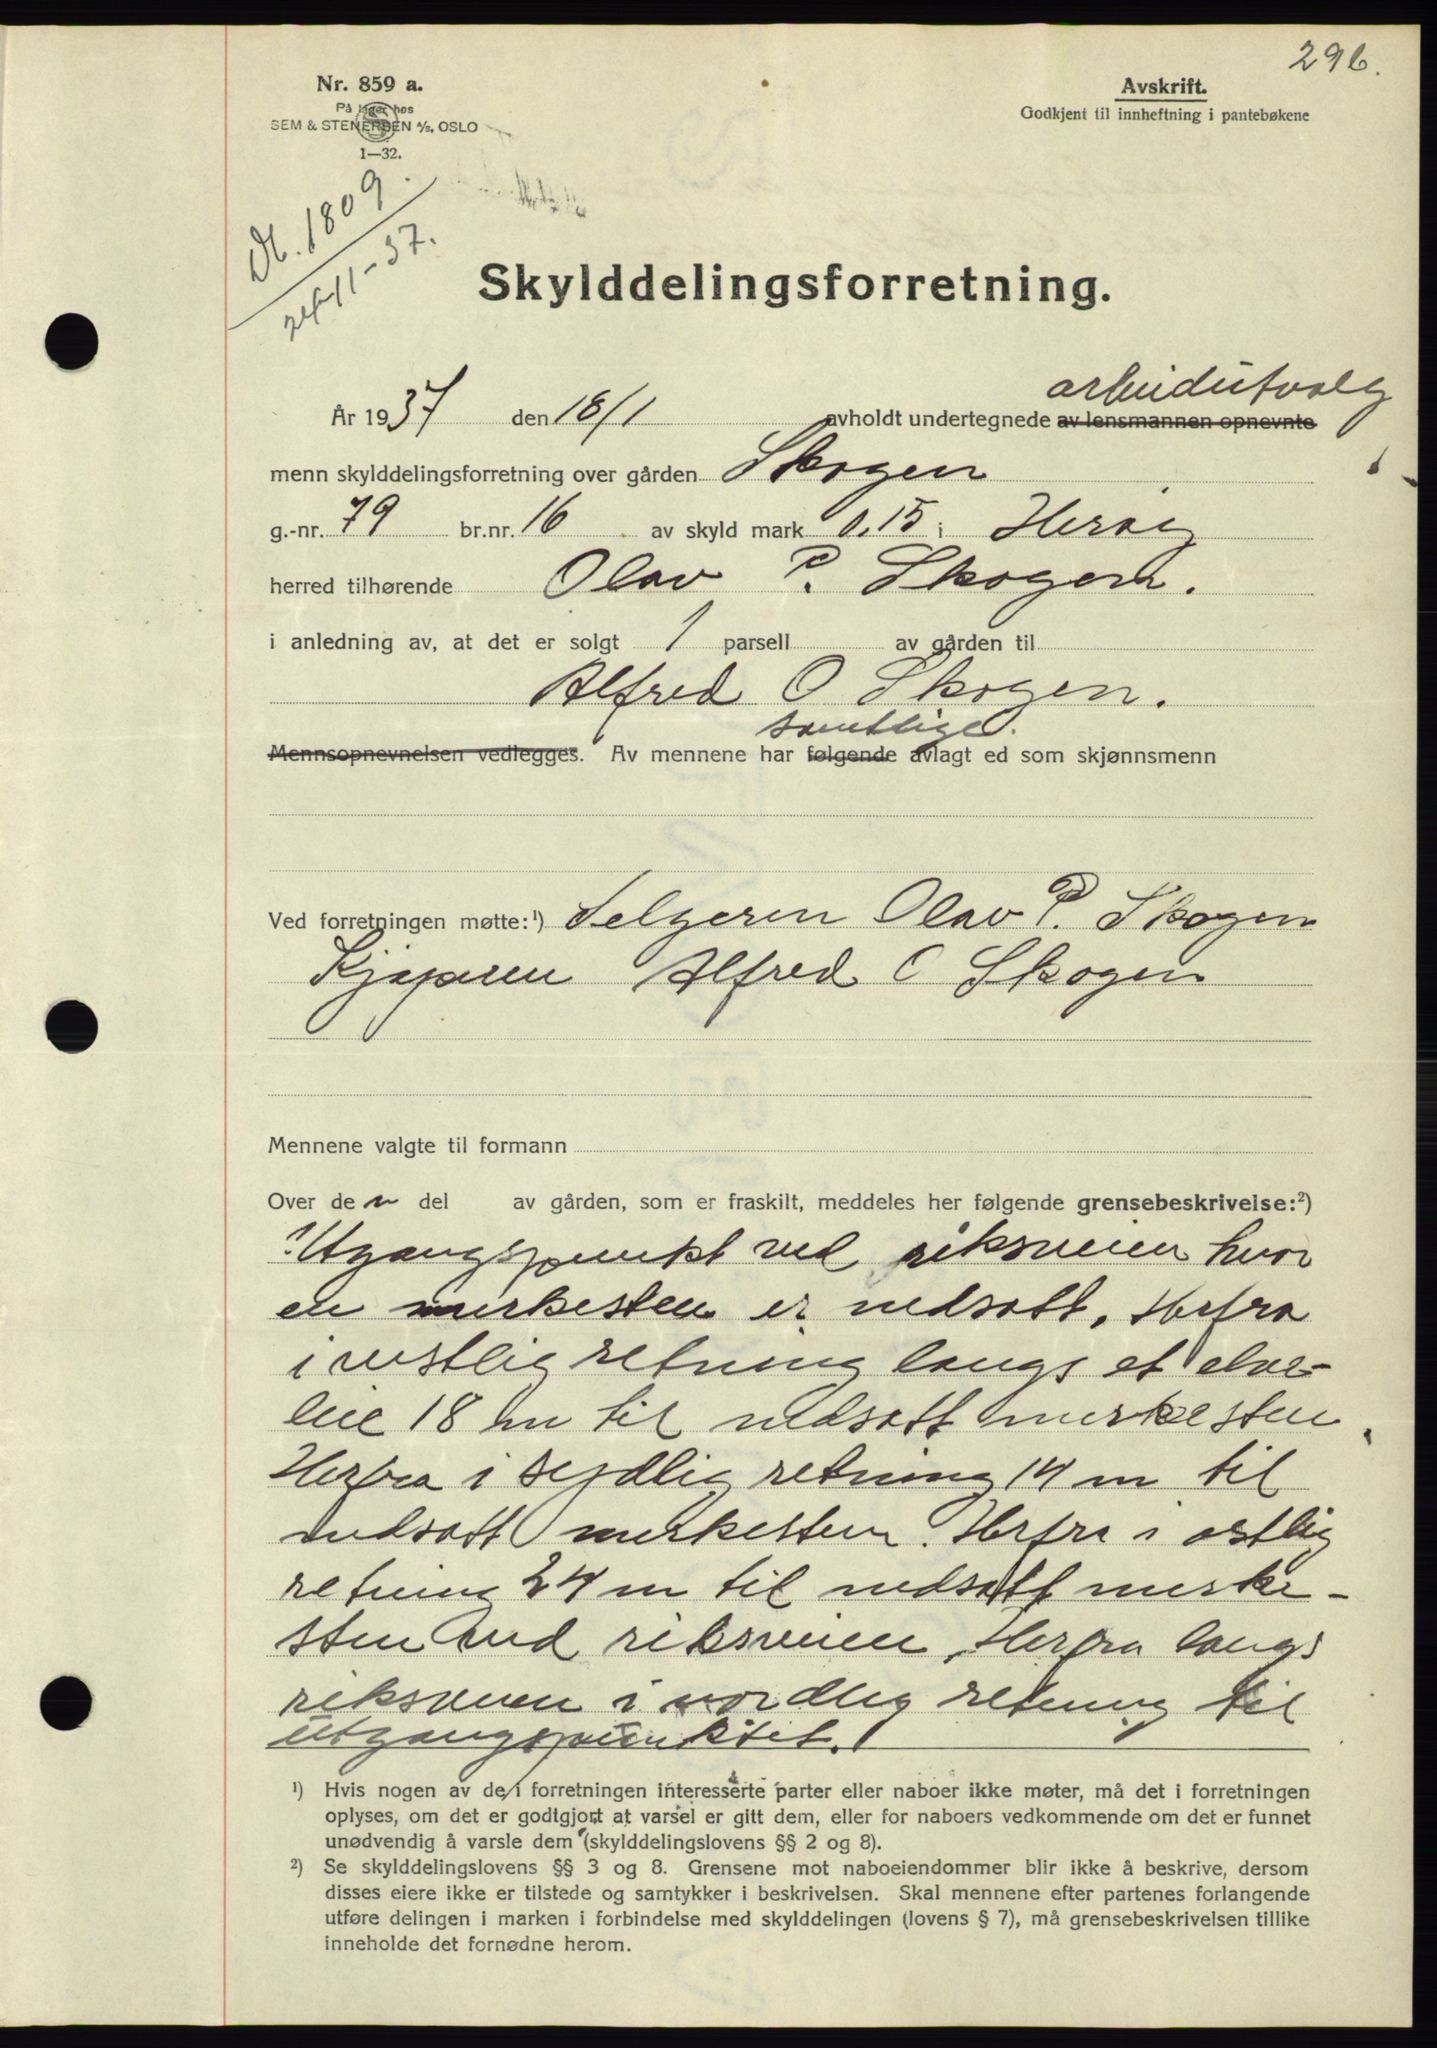 296.
Nr. 859 a.
På lager hos
SEM & STENERSEN A/S, OSLO
1—32.
Avskrift.
Godkjent til innheftning i pantebøkene
Nr. 1809.
24/11-37.
Skylddelingsforretning.
arbeidsutvalg
År 1937 den 18/1 avholdt undertegnede av lensmannen opnevnte
menn skylddelingsforretning over gården Skogen
g.-nr. 79 br.nr. 16 av skyld mark 0.15 i Herøy
herred tilhørende Olav P. Skogen.
i anledning av, at det er solgt 1 parsell av gården til
Alfred O Skogen.
samtlige.
Mennsopnevnelsen vedlegges. Av mennene har følgende avlagt ed som skjønnsmenn
Ved forretningen møtte:¹) Selgeren Olav P. Skogen
Kjøperen Alfred O Skogen
Mennene valgte til formann
Over den del av gården, som er fraskilt, meddeles her følgende grensebeskrivelse:²)
Utgangspunkt ved riksveien hvor
en merkesten er nedsatt. Herfra
i vestlig retning langs et elve-
leie 18 m til nedsatt merkesten.
Herfra i sydlig retning 14 m til
nedsatt merkesten. Herfra i østlig
retning 24 m til nedsatt merke-
sten ved riksveien. Herfra langs
riksveien i nordlig retning til
utgangspunktet.
¹) Hvis nogen av de i forretningen interesserte parter eller naboer ikke møter, må det i forretningen
oplyses, om det er godtgjort at varsel er gitt dem, eller for naboers vedkommende om det er funnet
unødvendig å varsle dem (skylddelingslovens §§ 2 og 8).
²) Se skylddelingslovens §§ 3 og 8. Grensene mot naboeiendommer blir ikke å beskrive, dersom
disses eiere ikke er tilstede og samtykker i beskrivelsen. Skal mennene efter partenes forlangende
utføre delingen i marken i forbindelse med skylddelingen (lovens § 7), må grensebeskrivelsen tillike
inneholde det fornødne herom.